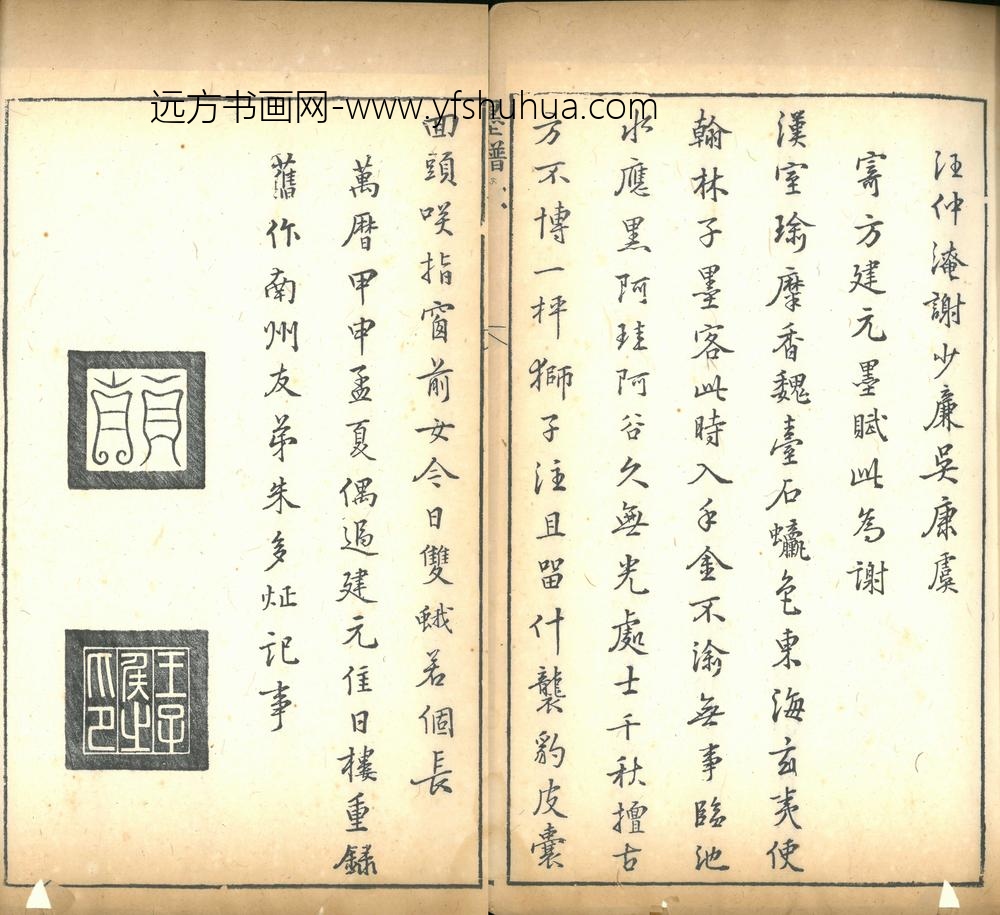 远方书画网-www.yfshuhua.com
汪仲淹謝少廉吳康虞
寄方建元墨賦此為謝
漢室瑜麋香魏臺石螺色東海玄夷使
翰林子墨客此時入手金不渝無事臨池
水應黑阿珪阿谷久無光處士千秋擅古
方不博一枰獅子注且留什襲豹皮囊
面頭咲指窗前女今日雙蛾若個長
萬曆甲申孟夏偶過建元佳日樓重錄
舊作南州友弟朱多炡記事
墨譜
王孫